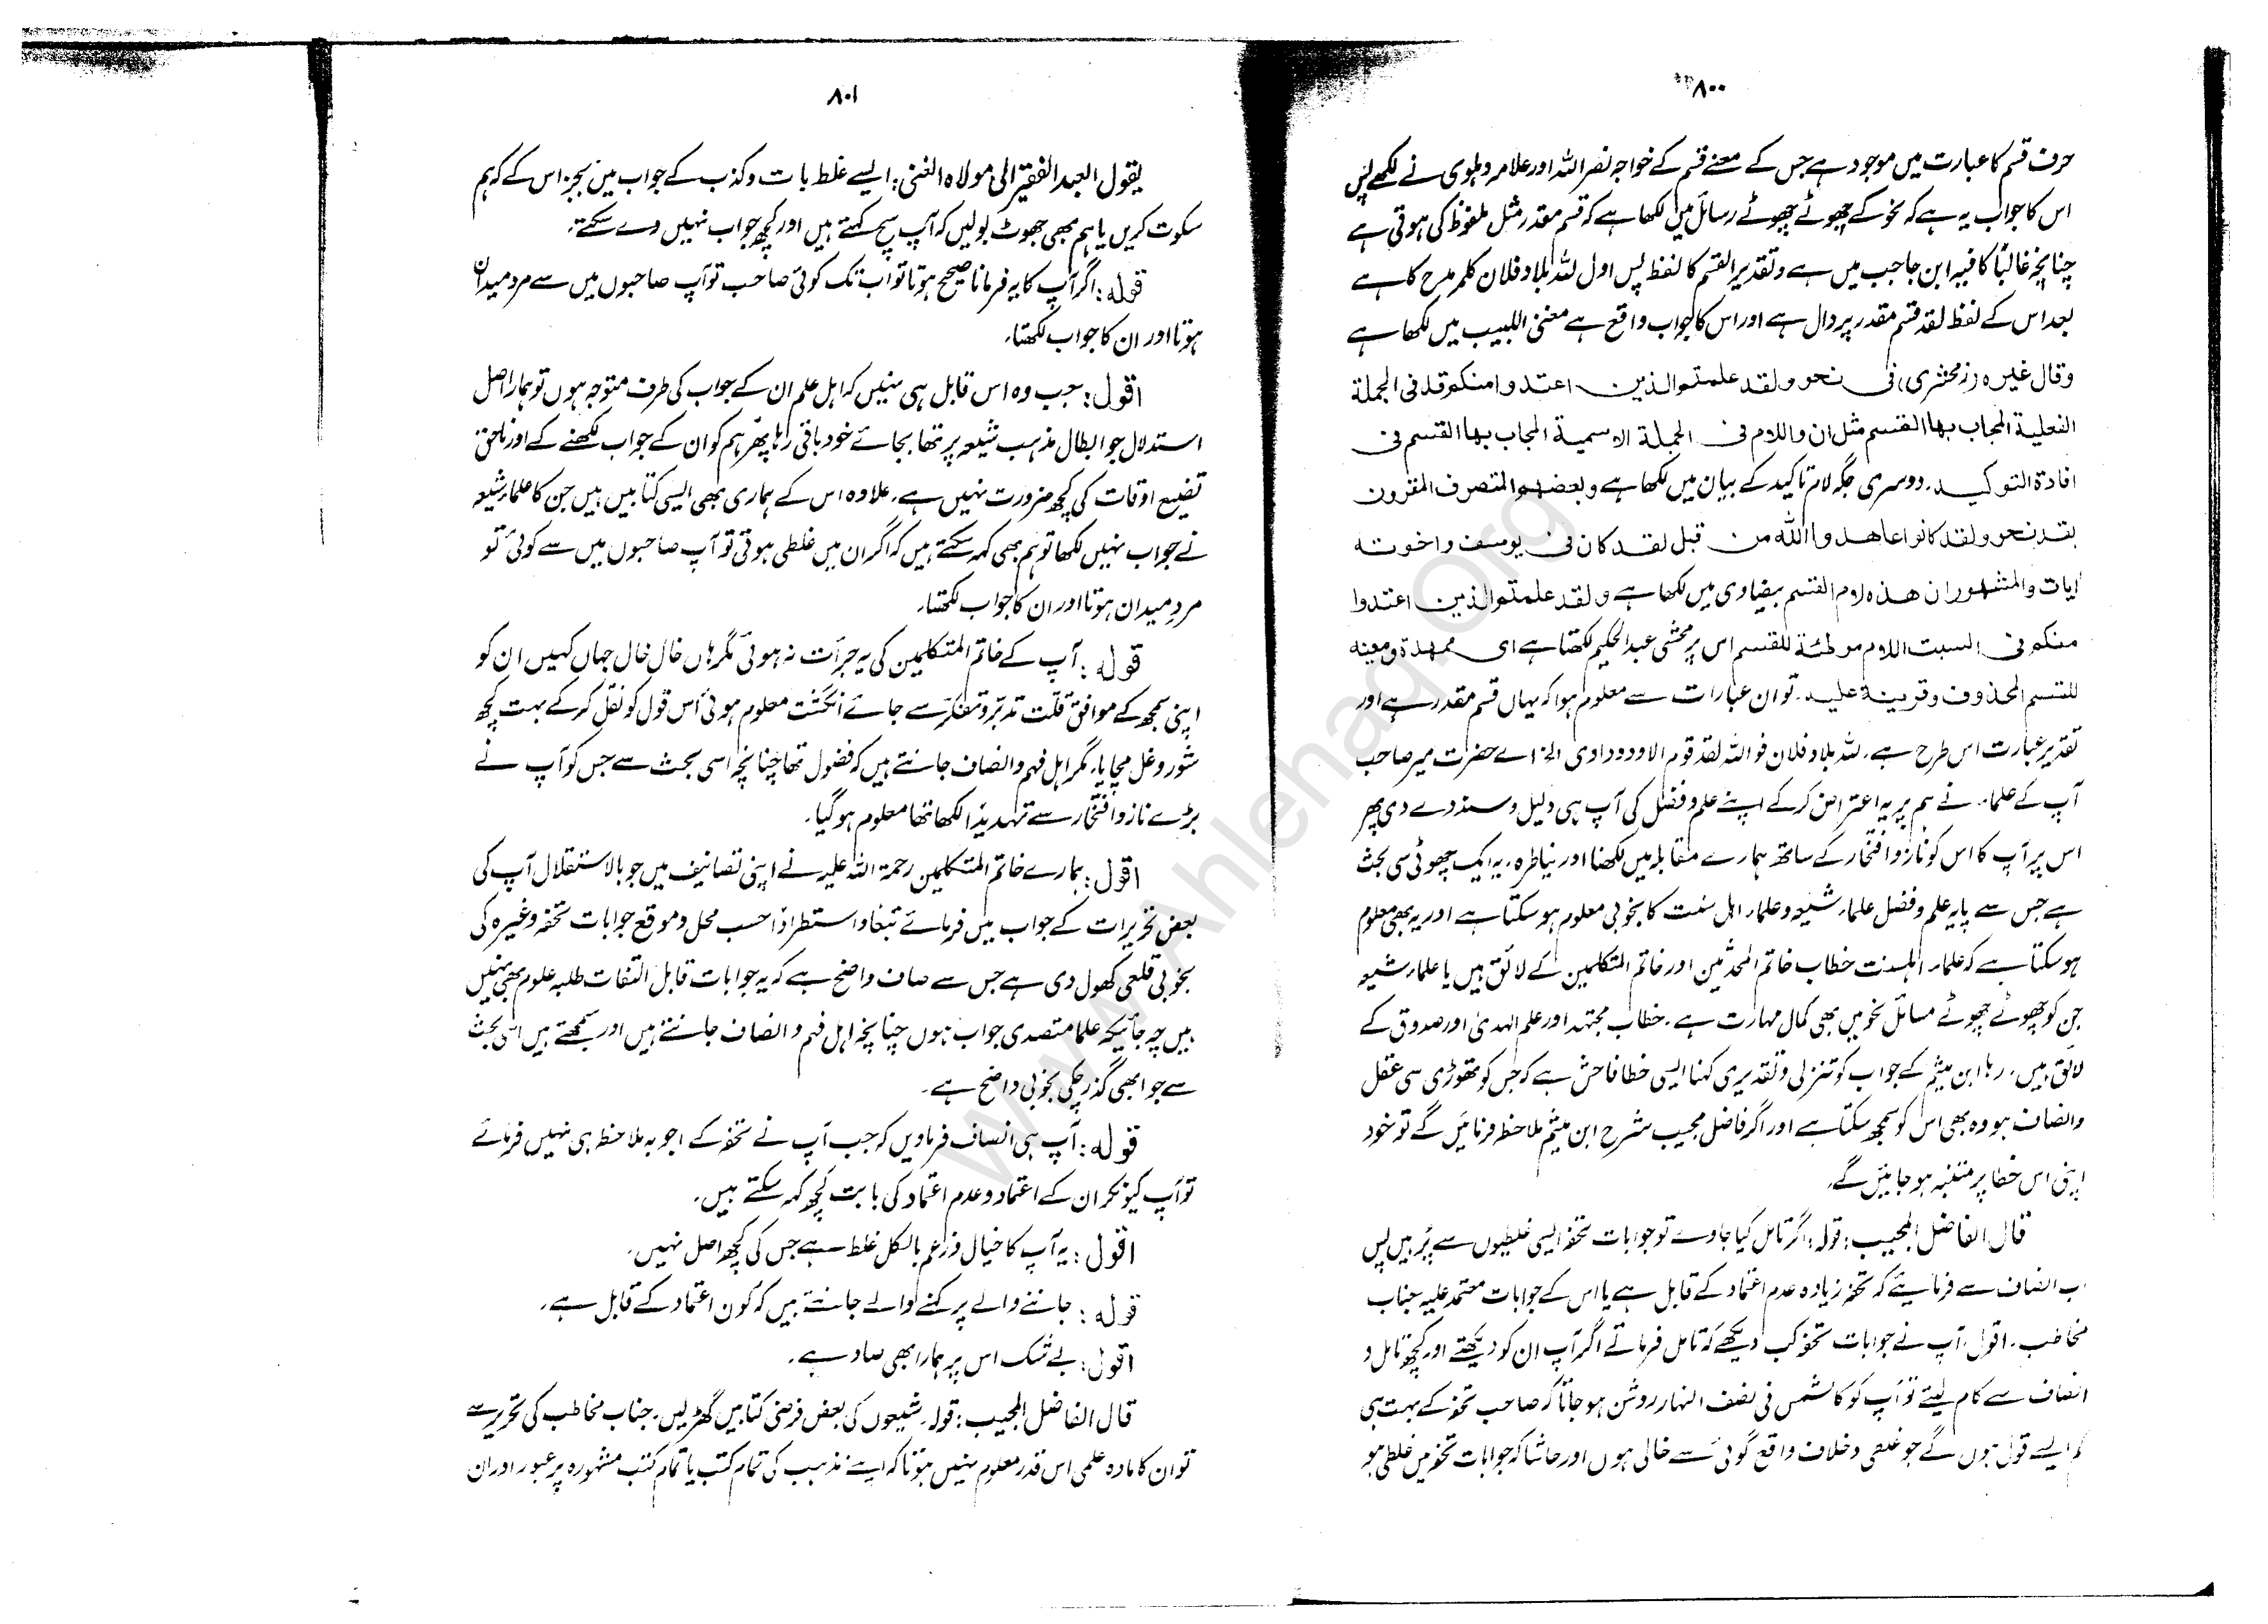 ٨٠٠
حرف قسم کا عبارت میں موجود ہے جس کے معنے قسم کے خواجہ نصر اللہ اور علامہ دہلوی نے لکھے پس
اس کا جواب یہ ہے کہ نحو کے چھوٹے چھوٹے رسائل میں لکھا ہے کہ قسم مقدر مثل ملفوظ کی ہوتی ہے
چنانچہ غالباً کافیہ ابن حاجب میں ہے وتقدیر القسم کاللفظ پس اول للہ بلاد فلان کلمہ مدح کا ہے
بعد اس کے لفظ لقد قسم مقدر پر دال ہے اور اس کا جواب واقع ہے مغنی اللبیب میں لکھا ہے
وقال غیرہ (زمخشری) فی نحو ولقد علمتم الذین اعتدوا منکم قد فی الجملة
الفعلیة المجاب بها القسم مثل ان واللام فی الجملة الاسمیة المجاب بها القسم فی
افادة التوکید۔ دوسری جگہ لام تاکید کے بیان میں لکھا ہے وبعضهم المتصرف المقرون
بقد نحو ولقد کانوا عاهدوا الله من قبل لقد کان فی یوسف واخوته
ایات والمشهور ان هذه لام القسم بیضاوی میں لکھا ہے ولقد علمتم الذین اعتدوا
منکم فی السبت اللام موطئة للقسم اس پر محشی عبدالحکیم لکھتا ہے ای ممهدة ومعینه
للقسم المحذوف وقرینة علیه۔ تو ان عبارات سے معلوم ہوا کہ یہاں قسم مقدر ہے اور
تقدیر عبارت اس طرح ہے۔ للہ بلاد فلان فواللہ لقد قوم الاود وداوی الخ اے حضرت میر صاحب
آپ کے علماء نے ہم پر یہ اعتراض کرکے اپنے علم و فضل کی آپ ہی دلیل و سند دے دی پھر
اس پر آپ کا اس کو ناز و افتخار کے ساتھ ہمارے مقابلہ میں لکھنا اور نیا طرہ، یہ ایک چھوٹی سی بحث
ہے جس سے پایہ علم و فضل علماء شیعہ و علماء اہل سنت کا بخوبی معلوم ہو سکتا ہے اور یہ بھی معلوم
ہو سکتا ہے کہ علماء اہلسنت خطاب خاتم المحدثین اور خاتم المتکلمین کے لائق ہیں یا علماء شیعہ
جن کو چھوٹے چھوٹے مسائل نحو میں بھی کمال مہارت ہے۔ خطاب مجتہد اور علم الہدیٰ اور صدوق کے
لائق ہیں۔ رہا ابن میثم کے جواب کو تنزلی و تقدیری کہنا ایسی خطا فاحش ہے کہ جس کو تھوڑی سی عقل
و انصاف ہو وہ بھی اس کو سمجھ سکتا ہے اور اگر فاضل مجیب شرح ابن میثم ملاحظہ فرمائیں گے تو خود
اپنی اس خطا پر متنبہ ہو جائیں گے۔
قال الفاضل المجیب: قولہ: اگر تامل کیا جاوے تو جوابات تحفہ ایسی غلطیوں سے پُر ہیں پس
اب انصاف سے فرمائیے کہ تحفہ زیادہ عدم اعتماد کے قابل ہے یا اس کے جوابات معتمد علیہ جناب
مخاطب۔ اقول: آپ نے جوابات تحفہ کب دیکھے کہ تامل فرماتے اگر آپ ان کو دیکھتے اور کچھ تامل و
انصاف سے کام لیتے تو آپ کو کالشمس فی نصف النہار روشن ہو جاتا کہ صاحب تحفہ کے بہت ہی
کم ایسے قول ہوں گے جو غلطی و خلاف واقع گوئی سے خالی ہوں اور حاشا کہ جوابات تحفہ میں غلطی ہو
٨٠١
یقول العبد الفقیر الی مولاہ الغنی: ایسے غلط بات و کذب کے جواب میں بجز اس کے کہ ہم
سکوت کریں یا ہم بھی جھوٹ بولیں کہ آپ سچ کہتے ہیں اور کچھ جواب نہیں دے سکتے۔
قولہ: اگر آپ کا یہ فرمانا صحیح ہوتا تو اب تک کوئی صاحب تو آپ صاحبوں میں سے مرد میدان
ہوتا اور ان کا جواب لکھتا۔
اقول: جب وہ اس قابل ہی نہیں کہ اہل علم ان کے جواب کی طرف متوجہ ہوں تو ہمارا اصل
استدلال جو ابطال مذہب شیعہ پر تھا بجائے خود باقی رہا پھر ہم کو ان کے جواب لکھنے کے اور ناحق
تضیع اوقات کی کچھ ضرورت نہیں ہے، علاوہ اس کے ہماری بھی ایسی کتابیں ہیں جن کا علماء شیعہ
نے جواب نہیں لکھا تو ہم بھی کہہ سکتے ہیں کہ اگر ان میں غلطی ہوتی تو آپ صاحبوں میں سے کوئی تو
مرد میدان ہوتا اور ان کا جواب لکھتا۔
قولہ: آپ کے خاتم المتکلمین کی یہ جرأت نہ ہوئی مگر ہاں خال خال جہاں کہیں ان کو
اپنی سمجھ کے موافق قلت تدبر و تفکر سے جائے انگشت معلوم ہوئی اس قول کو نقل کرکے بہت کچھ
شور و غل مچایا، مگر اہل فہم و انصاف جانتے ہیں کہ فضول تھا چنانچہ اسی بحث سے جس کو آپ نے
بڑے ناز و افتخار سے تہدیدًا لکھا تھا معلوم ہو گیا۔
اقول: ہمارے خاتم المتکلمین رحمۃ اللہ علیہ نے اپنی تصانیف میں جو بالاستقلال آپ کی
بعض تحریرات کے جواب میں فرمائے تبعًا و استطرادًا حسب محل و موقع جوابات تحفہ وغیرہ کی
بخوبی قلعی کھول دی ہے جس سے صاف واضح ہے کہ یہ جوابات قابل التفات طلبہ علوم بھی نہیں
ہیں چہ جائیکہ علما متصدی جواب ہوں چنانچہ اہل فہم و انصاف جانتے ہیں اور سمجھتے ہیں اسی بحث
سے جو ابھی گذر چکی بخوبی واضح ہے۔
قولہ: آپ ہی انصاف فرماویں کہ جب آپ نے تحفہ کے اجوبہ ملاحظہ ہی نہیں فرمائے
تو آپ کیونکر ان کے اعتماد و عدم اعتماد کی بابت کچھ کہہ سکتے ہیں۔
اقول: یہ آپ کا خیال و زعم بالکل غلط ہے جس کی کچھ اصل نہیں۔
قولہ: جاننے والے پرکھنے والے جانتے ہیں کہ کون اعتماد کے قابل ہے۔
اقول: بے شک اس پر ہمارا بھی صاد ہے۔
قال الفاضل المجیب: قولہ: شیعوں کی بعض فرضی کتابیں گھڑ لیں۔ جناب مخاطب کی تحریر سے
تو ان کا مادہ علمی اس قدر معلوم نہیں ہوتا کہ اپنے مذہب کی تمام کتب یا تمام کتب مشہورہ پر عبور اور ان
www.Ahlehaq.Org